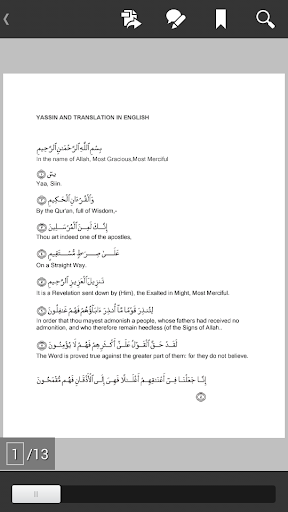 YASSIN AND TRANSLATION IN ENGLISH
بِسْمِ ٱللَّهِ ٱلرَّحْمَٰنِ ٱلرَّحِيمِ
In the name of Allah, Most Gracious,Most Merciful
يسٓ
Yaa, Siin.
وَٱلْقُرْءَانِ ٱلْحَكِيمِ
By the Qur'an, full of Wisdom,-
إِنَّكَ لَمِنَ ٱلْمُرْسَلِينَ
Thou art indeed one of the apostles,
عَلَىٰ صِرَٰطٍ مُّسْتَقِيمٍ
On a Straight Way.
تَنزِيلَ ٱلْعَزِيزِ ٱلرَّحِيمِ
It is a Revelation sent down by (Him), the Exalted in Might, Most Merciful.
لِتُنذِرَ قَوْمًا مَّآ أُنذِرَ ءَابَآؤُهُمْ فَهُمْ غَٰفِلُونَ
In order that thou mayest admonish a people, whose fathers had received no
admonition, and who therefore remain heedless (of the Signs of Allah..
لَقَدْ حَقَّ ٱلْقَوْلُ عَلَىٰٓ أَكْثَرِهِمْ فَهُمْ لَا يُؤْمِنُونَ
The Word is proved true against the greater part of them: for they do not believe.
إِنَّا جَعَلْنَا فِىٓ أَعْنَٰقِهِمْ أَغْلَٰلًا فَهِىَ إِلَى ٱلْأَذْقَانِ فَهُم مُّقْمَحُونَ
1 /13